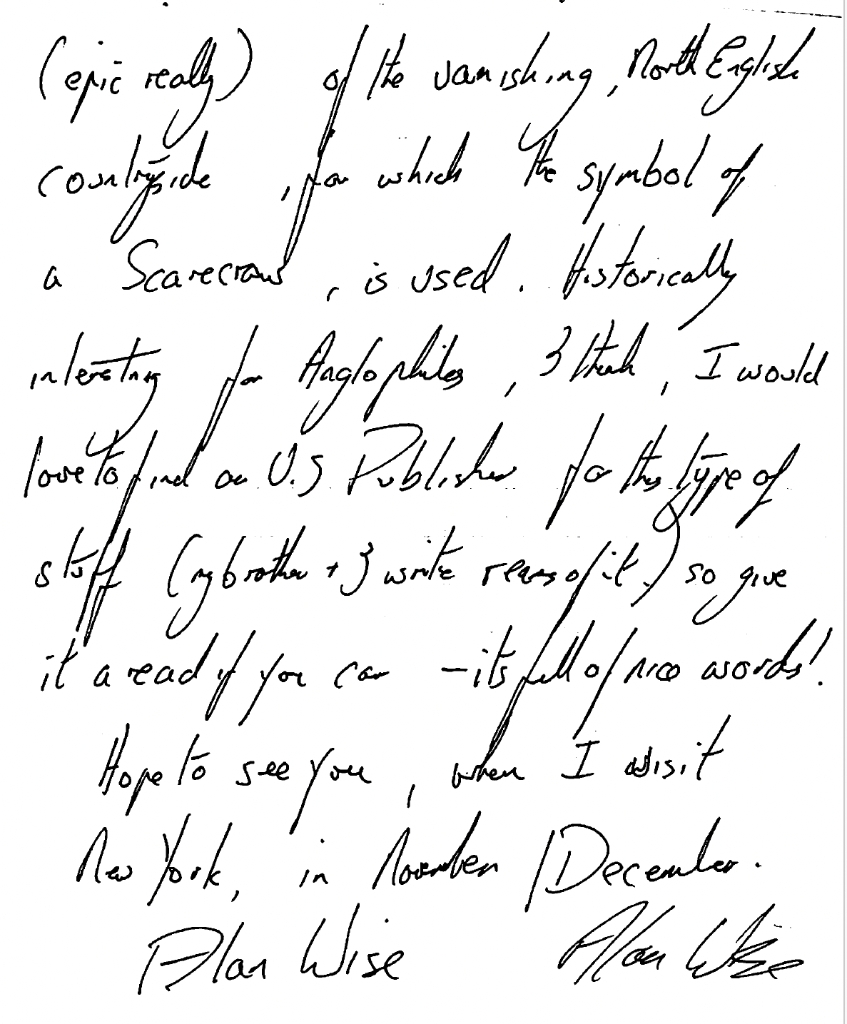 (epic really) of the vanishing, North English
countryside, for which the symbol of
a Scarecrow, is used. Historically
interesting for Anglophiles, I think, I would
love to find an U.S Publisher for this type of
stuff (my brother + I write reams of it.) so give
it a read if you can - its full of nice words!.
Hope to see you, when I visit
New York, in November / December.
Alan Wise Alan Wise